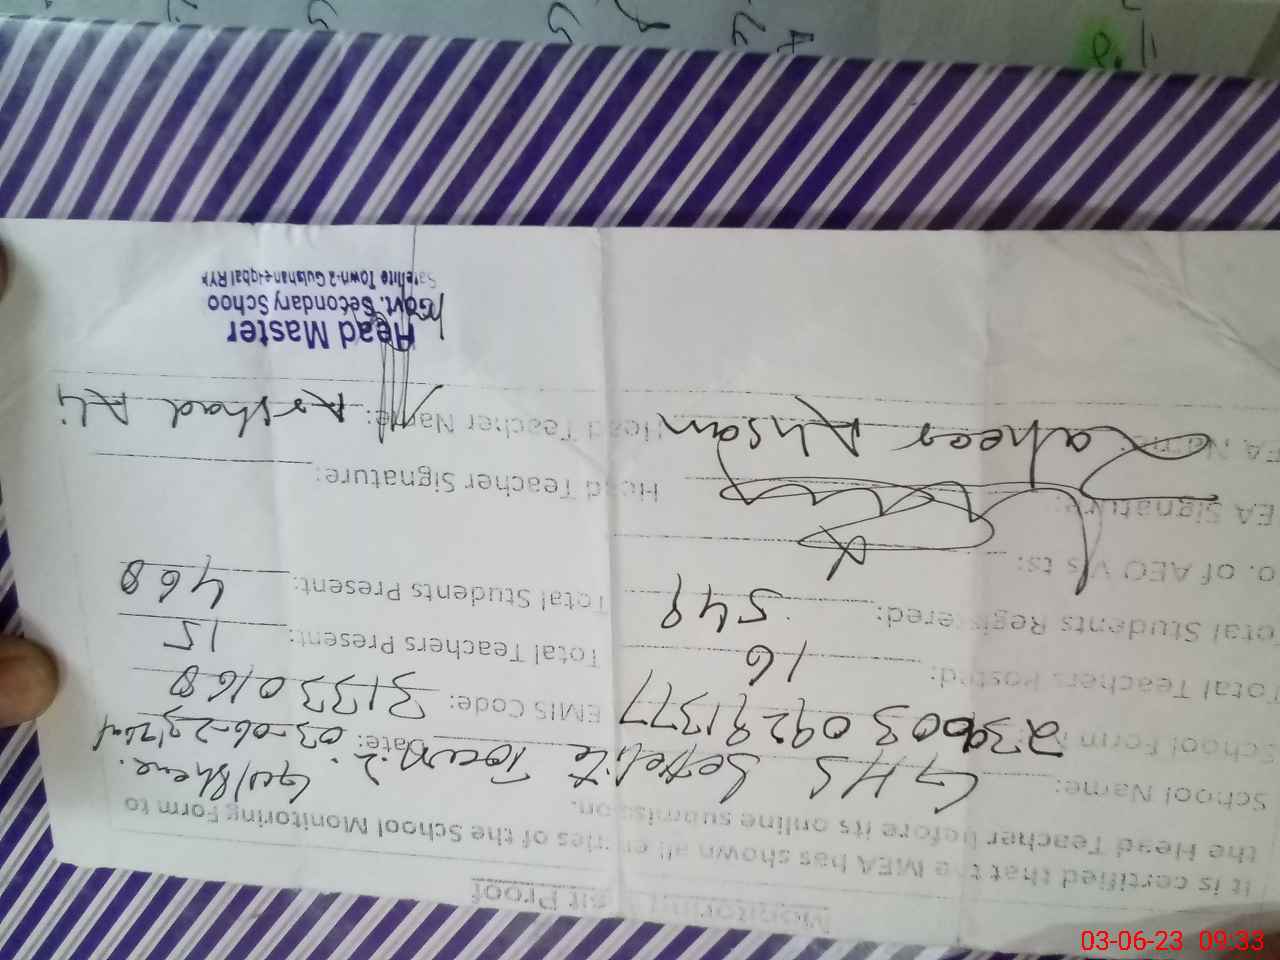 Monitoring
Visit Proof
It is certified that the MEA has shown all entries of the School Monitoring Form to
the Head Teacher before its online submission.
School Name: GHS Settelite Town-2 Gulshane
School Form 2300309291377 Date: 03-06-23
EMIS Code: 31330168
Total Teachers Posted: 16 Total Teachers Present: 15
Total Students Registered: 549 Total Students Present: 468
o. of AEO Visits:
EA Signature: Head Teacher Signature:
EA Name: Zaheer Ahsan Head Teacher Name: Arshad Ali
Head Master
Govt. Secondary Schoo
Satellite Town-2 Gulshan-e-Iqbal RYK
03-06-23 09:33